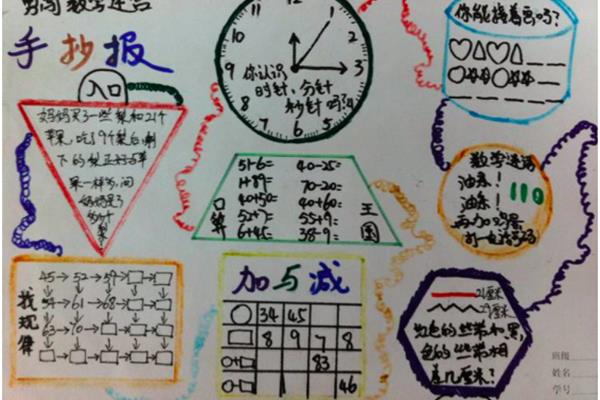 手抄报
入口
妈妈买了一些梨和21个
苹果,吃了9个梨后,剩
下的梨正好与苹
果一样多,问
妈妈买了
多少个
梨?
12
1
2
3
4
5
6
7
8
9
10
11
你认识
时针,分针
秒针吗?
你能接着画吗?
口算
王国
5+6= 40-25=
1+89= 70-20=
40+50= 40+60=
52+7= 55+9=
6+45= 38-9=
数学谜语
油条!
油条!
再加鸡蛋
110
找规律
45→52→59→□→□
54→61→68→□→□
63→70→□→□→□
□→□→□→□→□
加与减
○ 34 45
□ 8 9 7 8
○+□ 83
○-□ 46
21厘米
29厘米
红色的丝带和黑
色的丝带相
差几厘米?
班级
姓名
学号